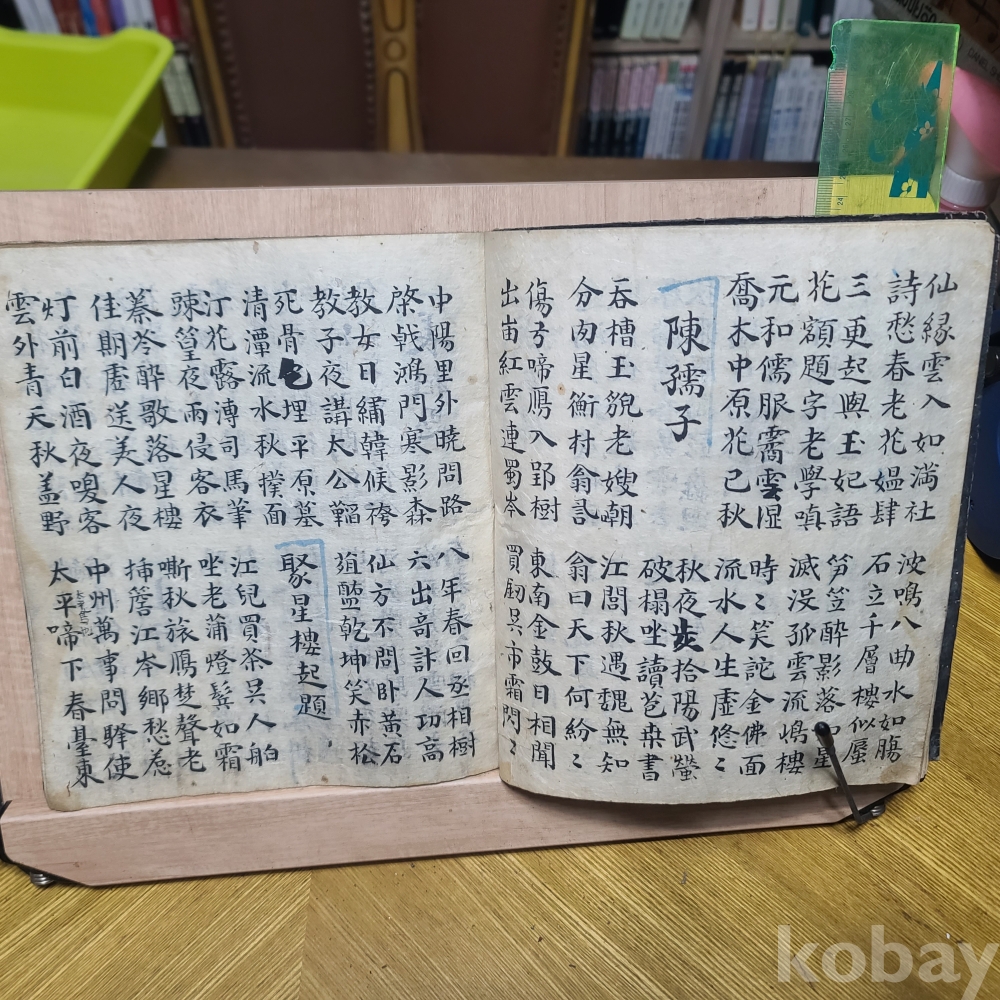 仙緣雲入如滿社
詩愁春老花媼肆
三更起與玉妃語
花額題字老學嗔
元和儒服霱雲湿
喬木中原花已秋
陳孺子
吞槽玉貌老嫂嘲
分肉星衡村翁
傷弓啼鴈入郢樹
出崮紅雲連蜀岑
波鳴八曲水如腸
石立千層樓似蜃
笋笠酔影落如星
滅没孤雲流嶋樓
時〻笑詑金佛面
流水人生虛悠〻
秋夜步拾陽武螢
破榻坐讀芭桒書
江間秋遇魏無知
翁曰天下何紛〻
東南金鼓日相聞
買劒吳市霜閃〻
中陽里外曉問路
棨戟鴻門寒影森
教女日繡韓候袴
教子夜講太公韜
死骨宅埋平原墓
清潭流水秋撲面
汀花露漙司馬筆
踈篁夜雨侵客衣
蓁苓醉歌落星樓
佳期虛送美人夜
灯前白酒夜嗅客
雲外青天秋盖野
八年春回丞相樹
六出奇計人功高
仙方不問卧黃石
葅醢乾坤笑赤松
聚星樓起題
江兒買茶吳人船
坐老蒲燈鬂如霜
嘶秋旅鴈楚聲老
挿簷江岑鄉愁惹
中州萬事問驛使
太平啼下春臺東